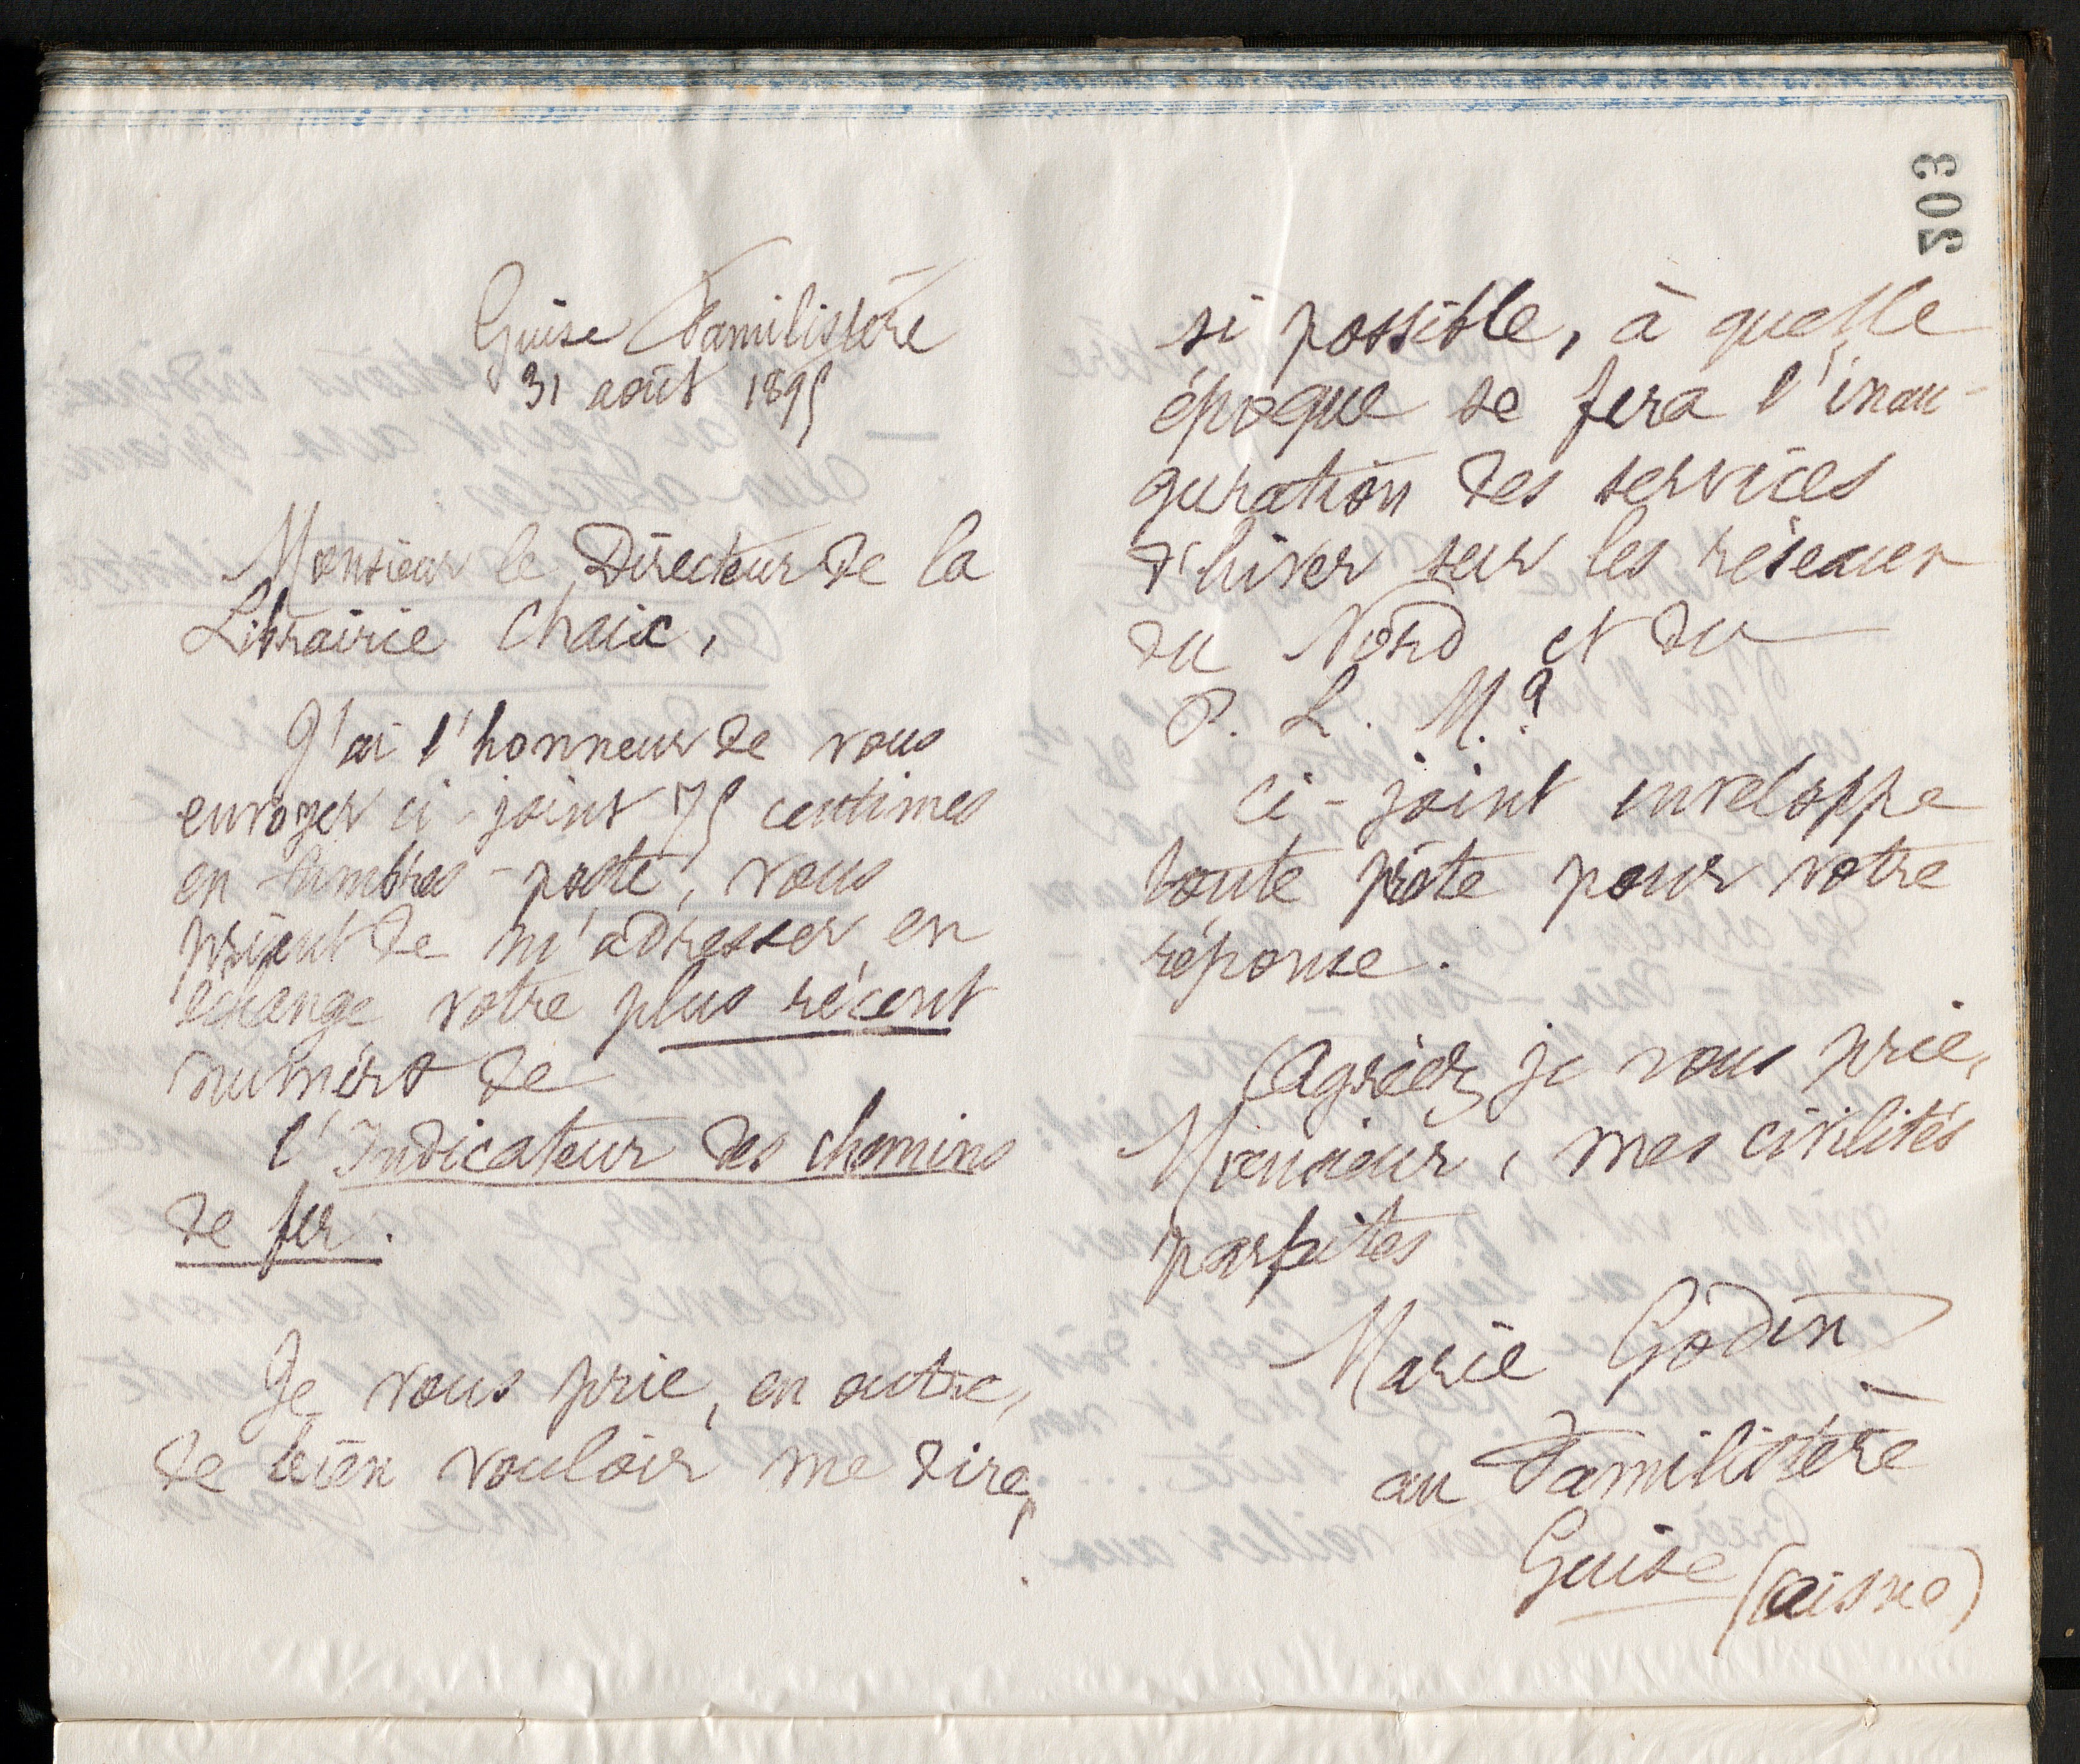 203
Guise Familistère
31 août 1895
Monsieur le Directeur de la
Librairie Chaix,
J'ai l'honneur de vous
envoyer ci-joint 75 centimes
en timbres-poste, vous
priant de m'adresser en
échange votre plus récent
numéro de
l'Indicateur des chemins
de fer.
Je vous prie, en outre,
de bien vouloir me dire,
si possible, à quelle
époque se fera l'inau-
guration des services
d'hiver sur les réseaux
du Nord et du
P. L. M.?
Ci-joint enveloppe
toute prête pour votre
réponse.
Agréez, je vous prie,
Monsieur, mes civilités
parfaites
Marie Godin
au Familistère
Guise (Aisne)